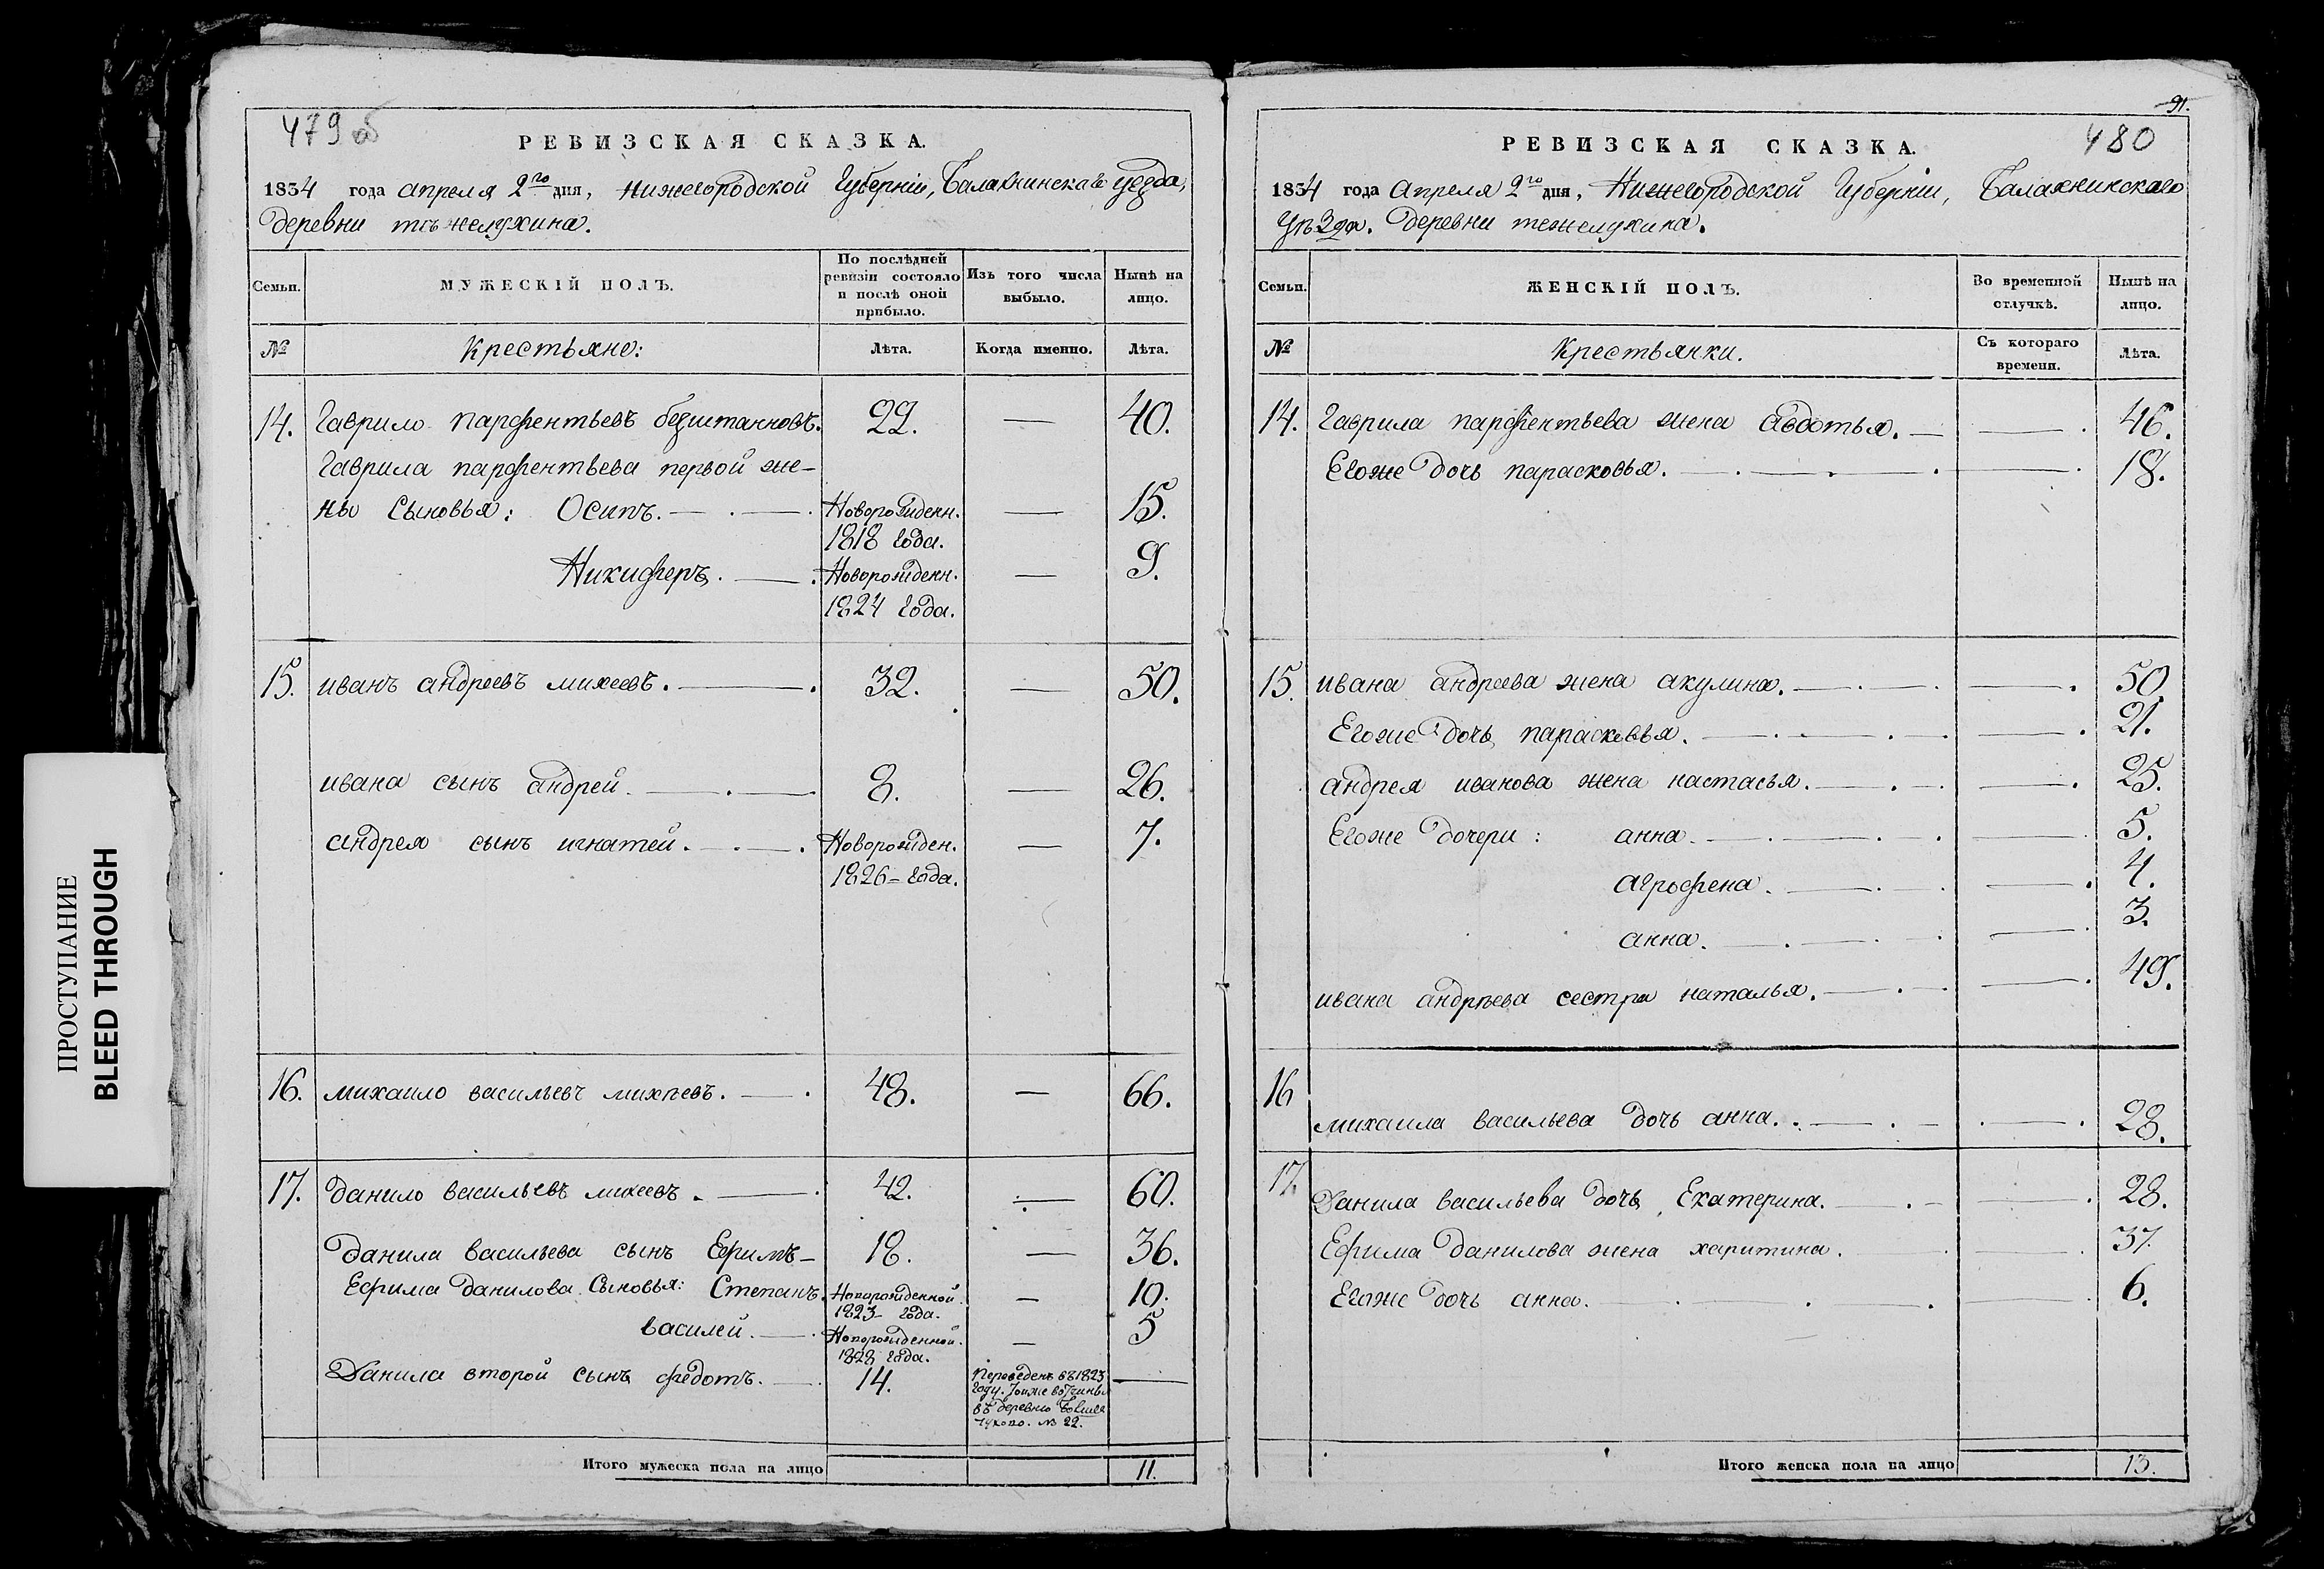 ПРОСТУПАНИЕ
BLEED THROUGH
479 об
РЕВИЗСКАЯ СКАЗКА.
1834 года апреля 2го дня, нижегородской Губернiи, Балахнинскаго уезда,
деревни тѣжелухина.
Семьи. МУЖЕСКІЙ ПОЛЪ. По послѣдней ревизіи состояло и послѣ оной прибыло. Изъ того числа выбыло. Нынѣ на лицо.
№ Крестьяне: Лѣта. Когда именно. Лѣта.
14. Гаврило парфентьевъ безштанновъ. 22. — 40.
Гаврила парфентьева первой же-
ны Сыновья: Осипъ. — Новорожденн. — 15.
1818 года.
Никифоръ. — Новорожденн. — 9.
1824 года.
15. иванъ андреевъ михеевъ. — 32. — 50.
ивана сынъ андрей. — 8. — 26.
андрея сынъ игнатей. — Новорожден. — 7.
1826 – года.
16. михаило васильевъ михѣевъ. — 48. — 66.
17. данило васильевъ михеевъ. — 42. — 60.
данила васильева сынъ Ефимъ – 18. — 36.
Ефима данилова Сыновья: Степанъ. Новорожденной. — 10.
1823 – года.
василей. — Новорожденной. — 5
1828 года.
Данила второй сынъ федотъ. — 14. Переведенъ въ 1823 —
году. тоиже вотчины
въ деревню
№ 22.
Итого мужеска пола на лицо 11.
91.
480
РЕВИЗСКАЯ СКАЗКА.
1834 года Апреля 2го дня, Нижегородской Губернiи, Балахнинскаго
Уѣзда. деревни тежелухина.
Семьи. ЖЕНСКІЙ ПОЛЪ. Во временной отлучкѣ. Нынѣ на лицо.
№ Крестьянки. Съ котораго времени. Лѣта.
14. Гаврила парфентьева жена авдотья. — 46.
Егоже дочь парасковья. — 18.
15. ивана андреева жена акулина. — 50.
Егоже дочь парасковья. — 21.
андрея иванова жена настасья. — 25.
Егоже дочери: анна. — 5.
агрофена. — 4.
анна. — 3.
ивана андрѣева сестра наталья. — 49.
16
михаила васильева дочь анна. — 28.
17. Данила васильева дочь Екатерина. — 28.
Ефима данилова жена харитина. — 37.
Егоже дочь анна. — 6.
Итого женска пола на лицо 13.